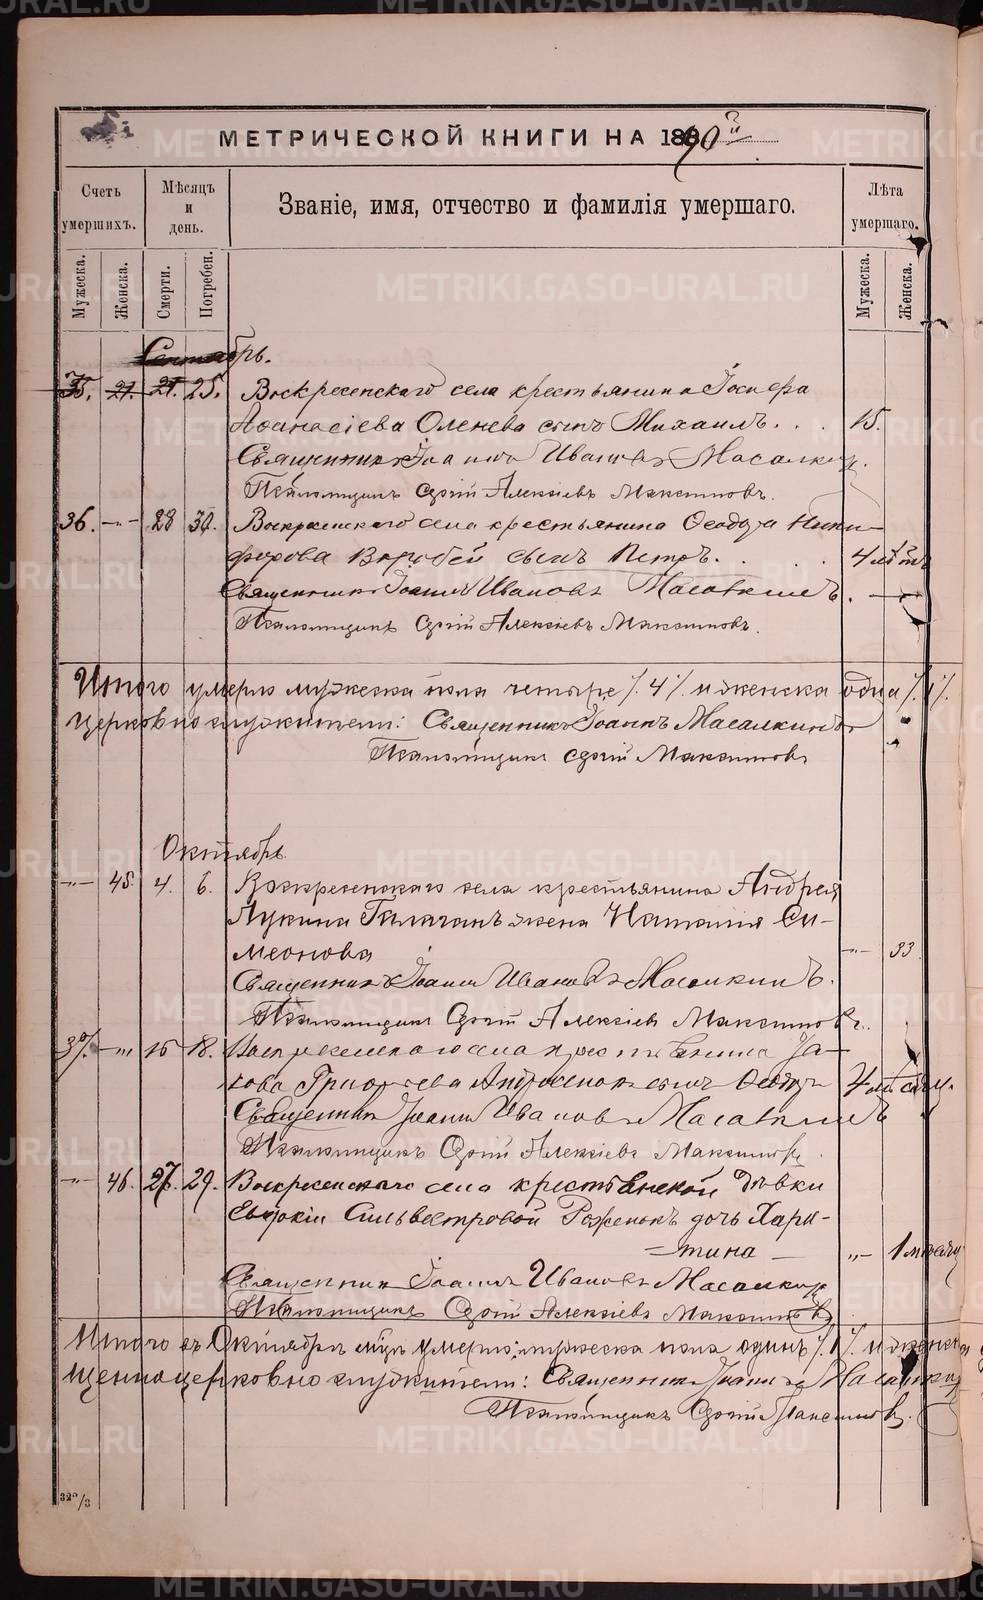 МЕТРИЧЕСКОЙ КНИГИ НА 1890й
Счетъ умершихъ.
Мѣсяцъ и день.
Званіе, имя, отчество и фамилія умершаго.
Лѣта умершаго.
Мужеска.
Женска.
Смерти.
Погребен.
Мужеска.
Женска.
Сентябрь.
35. 21. 25. Воскресенскаго села крестьянина Іосифа
Аѳанасіева Оленева сынъ Михаилъ. 15.
Священникъ Іоаннъ Ивановъ Масалкинъ.
Псаломщикъ Сергій Алексіевъ Максимовъ.
36. -"- 28 30. Воскресенскаго села крестьянина Ѳеодора Ники-
форова Воробей сынъ Петръ. 4 лѣтъ
Священникъ Іоаннъ Ивановъ Масалкинъ.
Псаломщикъ Сергій Алексіевъ Максимовъ.
Итого умерло мужеска пола четыре /.4/. и женска одна /.1/.
Церковнослужители: Священникъ Іоаннъ Масалкинъ
Псаломщикъ Сергій Максимовъ
Октябрь.
-"- 45. 4. 6. Воскресенскаго села крестьянина Андрея
Лукина Галаганъ жена Наталія Си-
меонова -"- 33
Священникъ Іоаннъ Ивановъ Масалкинъ.
Псаломщикъ Сергій Алексіевъ Максимовъ.
37. -"- 16 18. Воскресенскаго села крестьянина Іа-
кова Григорьева сынъ Ѳеодоръ
Священникъ Іоаннъ Ивановъ Масалкинъ
Псаломщикъ Сергій Алексіевъ Максимовъ.
-"- 46. 27. 29. Воскресенскаго села крестьянской дѣвки
Евдокіи Сильвестровой Роженокъ дочь Хари-
тина -"- 1 мѣсяцъ
Священникъ Іоаннъ Ивановъ Масалкинъ
Псаломщикъ Сергій Алексіевъ Максимовъ
Итого въ Октябрѣ мцѣ умерло: мужеска пола одинъ /.1/. и женска
Церковнослужители: Священникъ Іоаннъ Масалкинъ
Псаломщикъ Сергій Максимовъ.
32°/3
METRIKI.GASO-URAL.RU